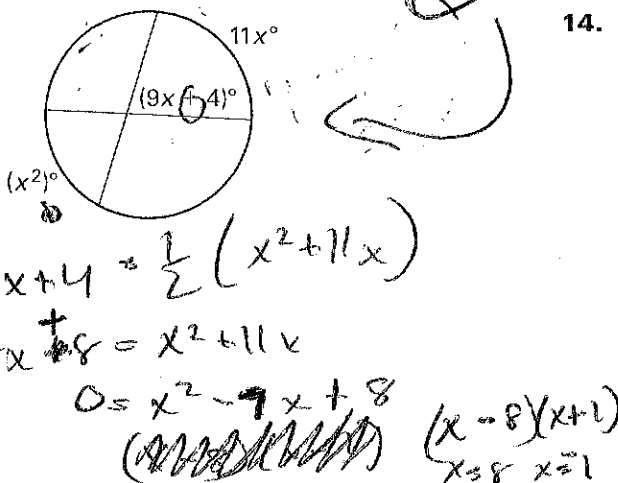 14.
11x°
(9x + 4)°
(x²)°
x + 4 = 1/2 (x² + 11x)
x + 8 = x² + 11x
0 = x² - 7x + 8
(x - 8)(x + 1)
x = 8 x = 1